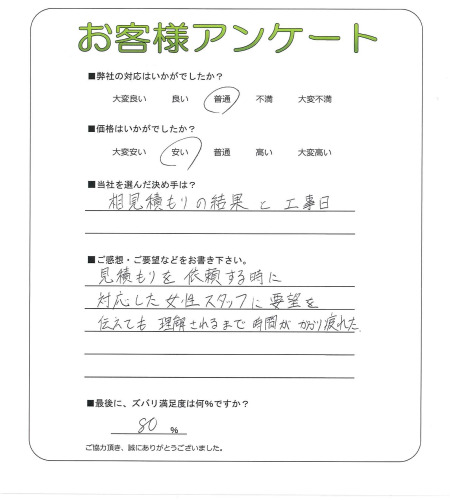 お客様アンケート
■弊社の対応はいかがでしたか？
大変良い 良い 普通 不満 大変不満
■価格はいかがでしたか？
大変安い 安い 普通 高い 大変高い
■当社を選んだ決め手は？
相見積もりの結果と工事日
■ご感想・ご要望などをお書き下さい。
見積もりを依頼する時に
対応した女性スタッフに要望を
伝えても理解されるまで時間がかかり疲れた
■最後に、ズバリ満足度は何％ですか？
80 ％
ご協力頂き、誠にありがとうございました。